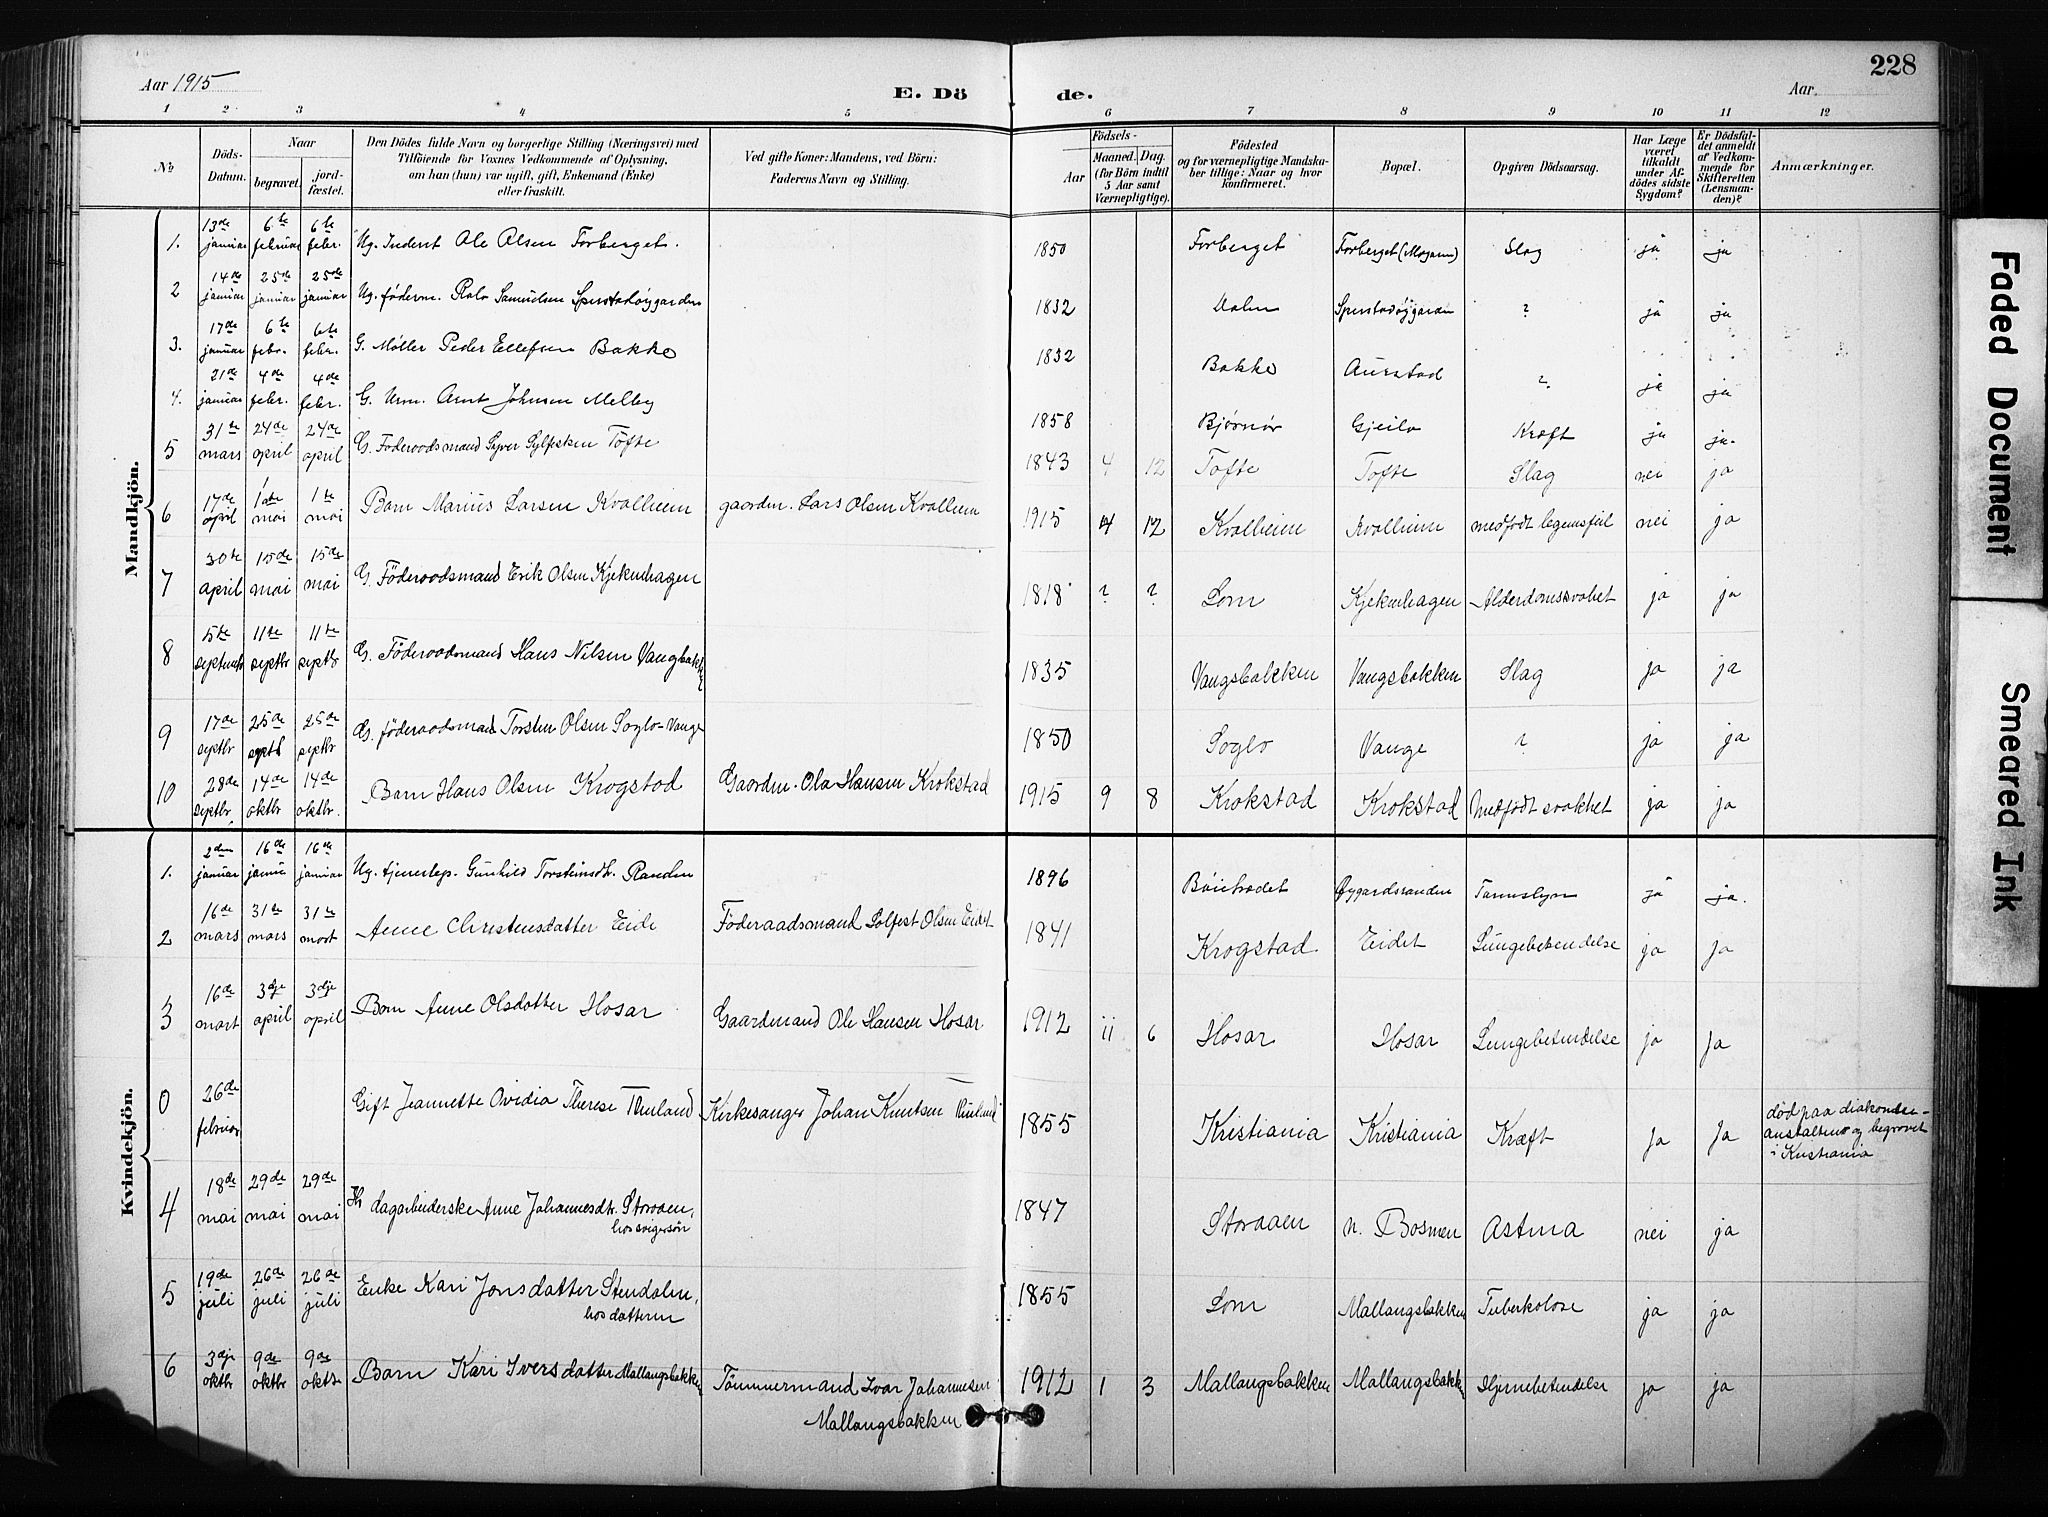 228
Aar 1915
E. Dö de.
Aar
1 2 3 4 5 6 7 8 9 10 11 12
No
Döds-Datum.
Naar
begravet.
jord-fæstet.
Den Dödes fulde Navn og borgerlige Stilling (Næringsvei) med
Tilföiende for Voxnes Vedkommende af Oplysning.
om han (hun) var ugift, gift, Enkemand (Enke)
eller fraskilt.
Ved gifte Koner: Mandens, ved Börn:
Faderens Navn og Stilling.
Födsels-
Aar
Maaned. Dag.
(for Börn indtil
5 Aar samt
Værnepligtige).
Födested
og for værnepligtige Mandska-
ber tillige: Naar og hvor
konfirmeret.
Bopæl.
Opgiven Dödsaarsag.
Har Læge
været
tilkaldt
under Af-
dödes sidste
Sygdom?
Er Dödsfal-
det anmeldt
af Vedkom-
mende for
Skifteretten
(Lensman-
den)?
Anmærkninger.
Mandkjön.
1. 13de januar 6te februar 6te febr. Ug. Inderst Ole Olsen Forberget. 1850 Forberget Forberget (Mogann) Slag ja ja
2 14de januar 25de januar 25de januar Ug. föderm. Rolv Samuelsen 1832 Dalen ? ja ja
3. 17de januar 6te febr. 6te febr. G. Møller Peder Ellefsen Bakke 1832 Bakke Aurstad ? ja ja
4. 21de januar 4de febr. 4de febr. G. Urm. Arnt Johnsen Melby 1858 Bjørnør Gjeilo Kræft ja ja.
5 31te mars 24de april 24de april G. Föderaadsmand Syver Sylfestsen Tofte 1843 4 12 Tofte Tofte Slag nei ja
6 17de april 1ste mai 1te mai Barn Marius Larsen Kvalheim gaardm. Lars Olsen Kvalheim 1915 4 12 Kvalheim Kvalheim medfödt legemsfeil nei ja
7 30te april 15de mai 15de mai G. Föderaadsmand Erik Olsen Kjekenhagen 1818 ? ? Lom Kjekenhagen Alderdomssvakhet ja ja
8 5te septembr 11te septbr 11te septbr G. Föderaadsmand Hans Nilsen Vangsbakken 1835 Vangsbakken Vangsbakken Slag ja ja
9 17de septbr 25de septb 25de septbr G. föderaadsmand Torsten Olsen Soglo-Vange 1850 Soglo Vange ? ja ja
10 28de septbr. 14de oktbr 14de oktbr. Barn Hans Olsen Krogstad Gaardm. Ola Hansen Krokstad 1915 9 8 Krokstad Krokstad Medfödt svakhet ja ja
Kvindekjön.
1. 2den januar 16de 16de januar Ug. tjenestep. Gunhild Torsteinsdt. Randen 1896 Øygardsranden ja ja.
2 16de mars 31te mars 31te mart Anne Christensdatter Eide Föderaadsmand Solfest Olsen Eidet 1841 Krogstad Eidet Lungebetendelse ja ja
3 16de mart 3dje april 3dje april Barn Anne Olsdatter Hosar Gaardmand Ole Hansen Hosar 1912 11 6 Hosar Hosar Lungebetendelse ja Ja
0 26de februar Gift Jeannette Ovidia Therese Thuland Kirkesanger Johan Knutsen Thuland 1855 Kristiania Kristiania Kræft Ja Ja död paa diakonisse-
anstalten og begravet
i Kristiania
4 18de mai 29de mai 29de mai dagarbeiderske Anne Johannesdt. Storaaen,
hos svigersön 1847 Storaaen n. Bosmen Astma nei ja
5 19de juli 26de juli 26de juli Enke Kari Jonsdatter Stendalen,
hos datteren 1855 Lom Mallangsbakken Tuberkolose ja ja
6 3dje oktbr 9de oktbr 9de oktb Barn Kari Iversdatter Mallangsbakken Tömmermand Ivar Johannesen
Mallangsbakken 1912 1 3 Mallangsbakken Mallangsbakken Hjernebetendelse ja ja
Faded Document
Smeared Ink